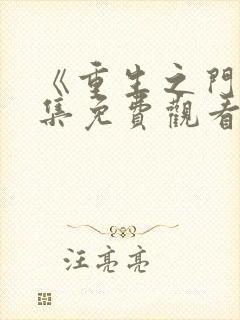 《重生之門
集免費觀看
汪亮亮